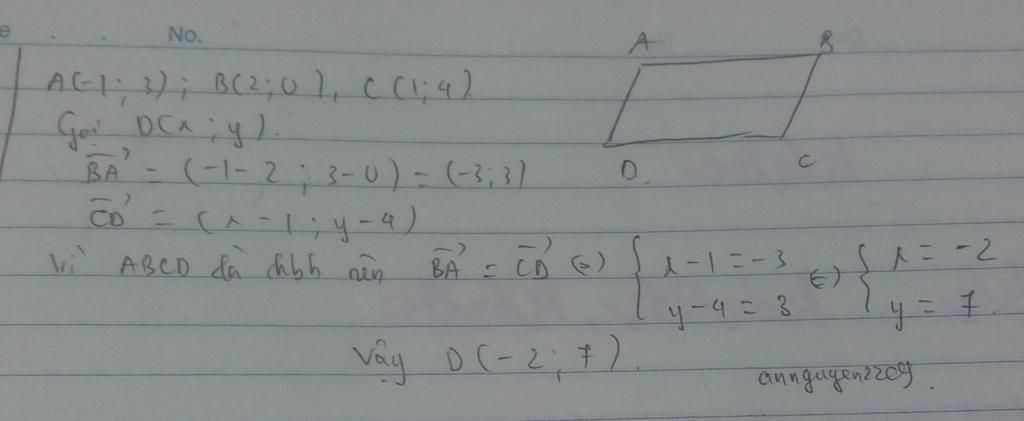 No.
A B
A(-1; 3); B(2; 0), C(1; 4)
Gọi D(x; y).
D. C
$\overrightarrow{BA}$ = (-1-2; 3-0) = (-3; 3)
$\overrightarrow{CD}$ = (x-1; y-4)
Vì ABCD là hbh nên $\overrightarrow{BA}$ = $\overrightarrow{CD}$ (=) { x-1 = -3 (=) { x = -2
y-4 = 3 y = 7.
Vậy D(-2; 7).
annguyen2209.